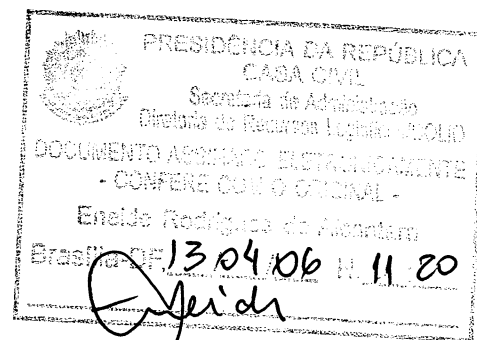 PRESIDÊNCIA DA REPÚBLICA
CASA CIVIL
Secretaria de Administração
Diretoria de Recursos Logísticos
DOCUMENTO ASSINADO ELETRONICAMENTE
- CONFERE COM O ORIGINAL -
Eneide Rodrigues de Alcantara
Brasília-DF, 13/04/06 H. 11 20